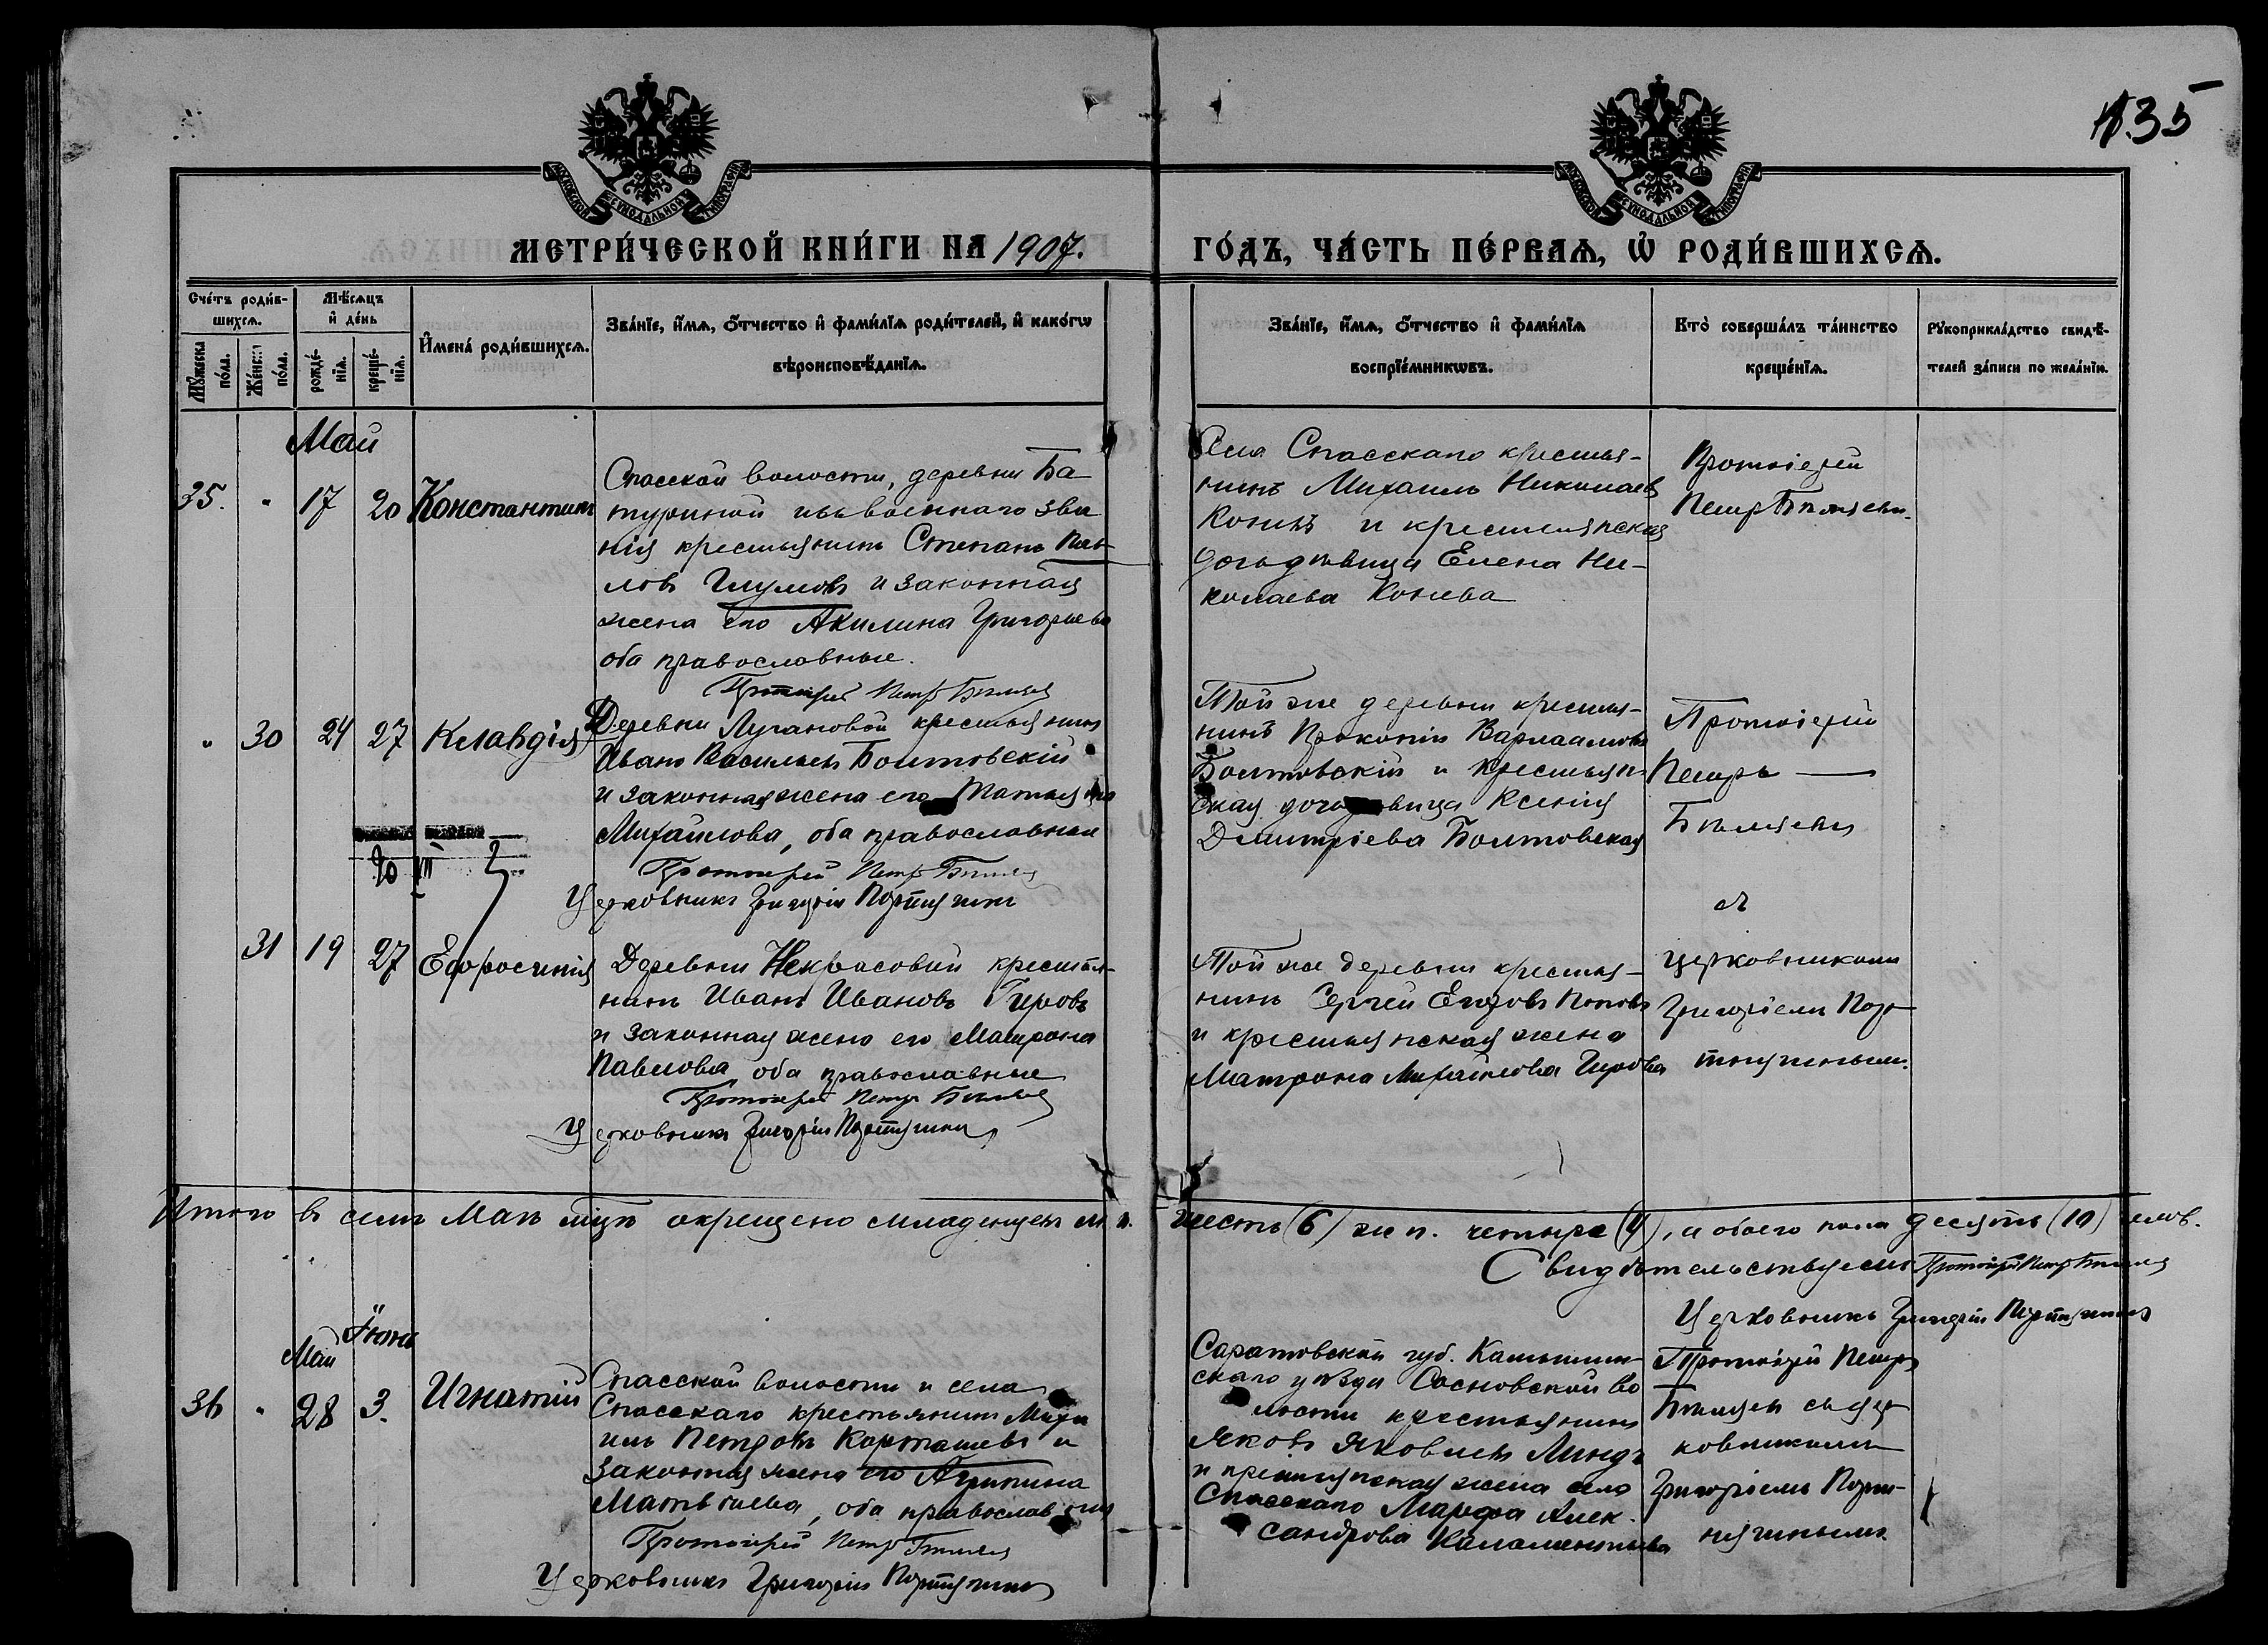 135
МОСКОВСКОЙ СѴНОДАЛЬНОЙ ТИПОГРАФІИ
МОСКОВСКОЙ СѴНОДАЛЬНОЙ ТИПОГРАФІИ
МЕТРИ́ЧЕСКОЙ КНИ́ГИ НА 1907. ГО́ДЪ, ЧА́СТЬ ПЕ́РВАѦ, Ѡ҆ РОДИ́ВШИХСѦ.
Сче́тъ роди́в-
шихсѧ.
Мꙋ́жеска по́ла.
Же́нска по́ла.
Мѣ́сѧцъ
и҆ де́нь
рожде́-
нїѧ.
креще́-
нїѧ.
И҆мена́ роди́вшихсѧ.
Зва́нїе, и҆́мѧ, ѻ҆́тчество и҆ фами́лїѧ роди́телей, и҆ како́гѡ
вѣроисповѣ́данїѧ.
Зва́нїе, и҆́мѧ, ѻ҆́тчество и҆ фами́лїѧ
воспрїе́мникѡвъ.
Кто̀ соверша́лъ та́инство
креще́нїѧ.
Рꙋкоприкла́дство свидѣ́-
телей за́писи по жела́нїю.
Май
35. " 17 20 Константинъ
Спасской волости, деревни Ба
туриной изъ военнаго зва
нія крестьянинъ Степанъ Пав
ловъ Глумовъ и законная
жена его Акилина Григорьева
оба православные.
Протоіерей Петръ Бѣляевъ
Села Спасскаго крестья-
нинъ Михаилъ Николаевъ
Коневъ и крестьянская
Елена Ни-
колаева Конева
Протоіерей
Петръ Бѣляевъ.
" 30 24 27 Клавдія
Деревни Лугановой крестьянинъ
Иванъ Васильевъ Болтовскій
и законная жена его Татьяна
Михайлова, оба православные
Протоіерей Петръ Бѣляевъ
Церковникъ Григорій Портнягинъ
Той же деревни крестья-
нинъ Прокопій Варлаамовъ
Болтовскій и крестьян
ская Ксенія
Димитріева Болтовская
Протоіерей
Петръ
Бѣляевъ
съ
церковникомъ
Григоріемъ Порт
нягинымъ.
31 19 27 Ефросинія
Деревни Некрасовой крестья-
нинъ Иванъ Ивановъ Гировъ
и законная жена его Матрона
Павлова, оба православные
Протоіерей Петръ Бѣляевъ
Церковникъ Григорій Портнягинъ
Той же деревни крестья-
нинъ Сергей Егоровъ Поповъ
и крестьянская жена
Матрона Михайлова Гирова
Итого въ семъ Маѣ мцѣ окрещено младенцевъ м. п. шесть (6) ж п. четыре (4), и обоего пола десять (10) челов.
Свидѣтельствуемъ Протоіерей Петръ Бѣляевъ
Церковникъ Григорій Портнягинъ
Май Іюнь
36 " 28 3. Игнатій
Спасской волости и села
Спасскаго крестьянинъ Миха
илъ Петровъ Карташевъ и
законная жена его Агрипина
Матвѣева, оба православные
Протоіерей Петръ Бѣляевъ
Церковникъ Григорій Портнягинъ
Саратовской губ. Камышин-
скаго уѣзда Сосновской во
лости крестьянинъ
Яковъ Яковлевъ Линдъ
и крестьянская жена села
Спасскаго Марфа Алек-
сандрова
Протоіерей Петръ
Бѣляевъ съ цер
ковникомъ
Григоріемъ Порт-
нягинымъ.